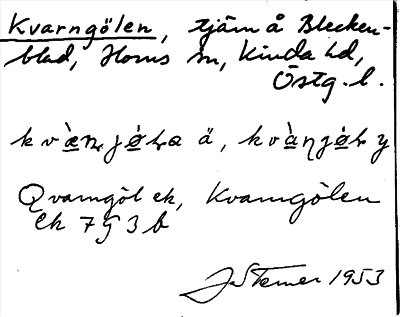 Kvarngölen, tjärn å Blecken-
blad, Horns sn, Kinda hd,
Östg. l.
Qvarngöl ek, Kvarngölen
Ek 7G 3b
JSterner 1953